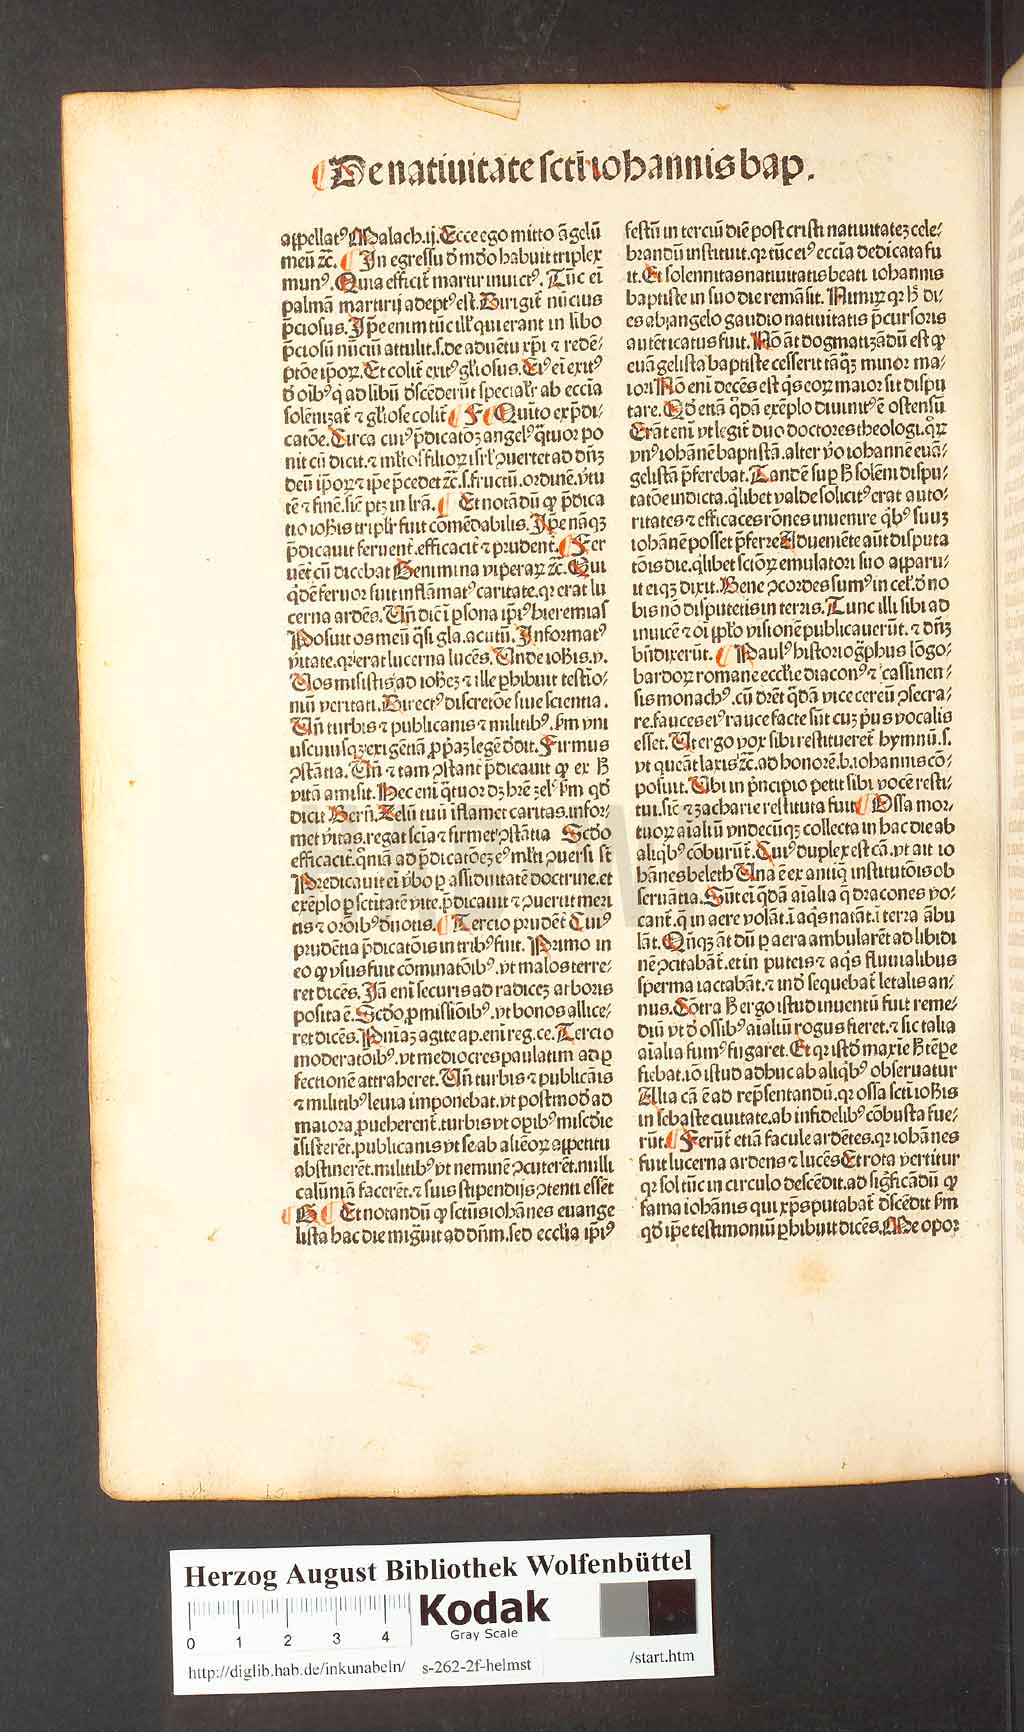 De natiuitate scti iohannis bap.
appellatꝰ Malach.ij. Ecce ego mitto āgelū
meū ⁊c. In egressu d̄ mōdo habuit triplex
munꝰ. Quia efficit̄ martir inuictꝰ. Tūc ei
palmā martirij adeptꝰ est. Dirigit̄ nūcius
p̄ciosus. Ip̄e enim tūc ill' qui erant in libo
p̄ciosū nūciū attulit.s.de aduētu xp̄i ⁊ redē⸗
ptōe ip̄oꝝ. Et colit̄ exitꝰ gl'iosus. Eiꝰ ei exitꝰ
d̄ oībꝰ q̇ ad libū dc̄sēderūt special'r ab eccīa
solēnizat̄ ⁊ gl'iose colit̄ F Quīto ex p̄di⸗
catōe. Circa cuiꝰ p̄dicatōꝫ angelꝰ q̄tuor po
nit cū dicit.⁊ ml'tos filioꝝ isrl' ꝯuertet ad dn̄ꝫ
deū ip̄oꝝ ⁊ ip̄e p̄cedet ⁊c.s.fructū.ordinē.v̓tu
tē ⁊ finē.sic̄ ptꝫ in lr̄a. Et notādū ꝙ p̄dica
tio ioh̄is tripl'r fuit comēdabilis. Ip̄e nāqꝫ
p̄dicauit feruent̄.efficacit̄ ⁊ prudent̄. Fer
uēt̄ cū dicebat Genimina viperaꝝ ⁊c. Qui
q̇dē feruor fuit inflāmatꝰ caritate.qꝛ erat lu
cerna ardēs. Vn̄ dic̄ i ꝑsona ip̄iꝰ hieremias
Posuit os meū q̄si gla.acutū. Informatꝰ
v̓itate.qꝛ erat lucerna lucēs. Vnde ioh̄is.v.
Vos misistis ad ioh̄eꝫ ⁊ ille ꝑhibuit testīo⸗
niū veritati. Directꝰ discretōe siue scientia.
Vn̄ turbis ⁊ publicanis ⁊ militibꝰ.ẜm vni
uscuiusqꝫ exigētiā ꝓpāꝫ legē d̄dit. Firmus
ꝯstātia. Vn̄ ⁊ tam ꝯstant̄ p̄dicauit ꝙ ex h̄
vitā amisit. Hec eni q̄tuor dꝫ h̄re zelꝰ ẜm qd̄
dicit Bern̄. Zelū tuū īflamet caritas.infor⸗
met v̓itas.regat scīa ⁊ firmet ꝯstātia Scd̄o
efficacit̄.qm̄iā ad p̄dicatōeꝫ eꝰ ml'ti ꝯuersi st̄
Predicauit ei v̓bo ꝑ assiduitatē doctrine.et
exēplo ꝑ sctitatē vite.p̄dicauit ⁊ ꝯuertit meri
tis ⁊ or̄oībꝰ d̓uotis. Tercio prudēt̄ Cuiꝰ
prudētia p̄dicatōis in tribꝰ fuit. Primo in
eo ꝙ vsus fuit cōminatōibꝰ.vt malos terre⸗
ret dicēs. Iā eni securis ad radiceꝫ arboris
posita ē. Scd̄o ꝓmissiōibꝰ.vt bonos allice⸗
ret dicēs. Pn̄iāꝫ agite ap.eni reg.ce. Tercio
moderatōibꝰ.vt mediocres paulatim ad ꝑ
fectionē attraheret. Vn̄ turbis ⁊ publicāis
⁊ militibꝰ leuia imponebat.vt postmod̄ ad
maiora ꝓueherent̄.turbis vt oꝑibꝰ misc̄die
īsisterēt.publicanis vt se ab aliēoꝝ appetitu
abstinerēt.militibꝰ vt neminē ꝯcuterēt.nulli
calūniā facerēt.⁊ suis stipendijs ꝯtenti essēt
G Et notandū ꝙ sctūs iohānes euange
lista hac die mig̓uit ad dn̄m.sed ecclīa ip̄iꝰ
festū in terciū diē post cristi natiuitateꝫ cele⸗
brandū instituit.qꝛ tūc eiꝰ eccīa dedicata fu
it. Et solennitas natiuitatis beati iohannis
baptiste in suo die remāsit. Nimiꝝ qꝛ h̄ di⸗
es ab angelo gaudio natiuitatis p̄cursoris
autēticatus fuit. Nō āt dogmatizādū est ꝙ
euāgelista baptiste cesserit tāqꝫ minor ma⸗
iori Nō eni decēs est q̇s eoꝝ maior sit dispu
tare. Qd̄ etiā q̄dā exēplo diuinitꝰ ē ostensū
Erāt eni vt legit̄ duo doctores theologi.q̄ꝝ
vnꝰ iohānē baptistā.alter v̓o iohannē euā⸗
gelistā p̄ferebat. Tandē suꝑ h̄ solēni dispu⸗
tatōe indicta.q̇libet valde solicitꝰ erat auto⸗
ritates ⁊ efficaces rōnes inuenire q̇bꝰ suuꝫ
iohānē posset p̄ferre Adueniēte aūt disputa
tōis die.q̇libet sctōꝝ emulatori suo apparu⸗
it eiqꝫ dixit. Bene ꝯcordes sumꝰ in cel'.d̄ no
bis nō disputetis in terris. Tunc illi sibi ad
inuicē ⁊ oi pp̄lo visionē publicauerūt.⁊ dn̄ꝫ
bn̄dixerūt. Paulꝰ historiog̓phus lōgo⸗
bardoꝝ romane eccl'ie diaconꝰ ⁊ cassinen⸗
sis monachꝰ.cū dr̄et q̄dā vice cereū ꝯsecra⸗
re.fauces eiꝰ rauce facte sūt cuꝫ p̓us vocalis
esset. Vt ergo vox sibi restitueret̄ hymnū.s.
vt queāt laxis ⁊c.ad honorē.b.iohannis cō⸗
posuit. Vbi in p̓ncipio petit sibi vocē resti⸗
tui.sic̄ ⁊ zacharie restituta fuit Ossa mor⸗
tuoꝝ aīaliū vndecūqꝫ collecta in hac die ab
aliq̇bꝰ cōburūt̄. Cuiꝰ duplex est cā.vt ait io
hānes beleth Vna ē ex antiq̄ institutōis ob
seruātia. Sūt ei q̄dā aīalia q̄ dracones vo⸗
cant̄.q̄ in aere volāt.ī aq̇s natāt.ī terra ābu
lāt. Qn̄qꝫ āt dū ꝑ aera ambularēt ad libidi
nē ꝯcitabāt̄.et in puteis ⁊ aq̇s fluuialibus
sperma iactabāt.⁊ ind̄ sequebat̄ letalis an⸗
nus. Cōtra h̄ ergo istud inuentū fuit reme⸗
diū vt d̄ ossibꝰ aīaliū rogus fieret.⁊ sic talia
aīalia fumꝰ fugaret. Et qꝛ istd̄ maxie h̄ tēpe
fiebat.iō istud adhuc ab aliq̇bꝰ obseruatur
Alia cā ē ad rep̄sentandū.qꝛ ossa scti ioh̄is
in sebaste ciuitate.ab infidelibꝰ cōbusta fue⸗
rūt. Ferūt̄ etiā facule ardētes.qꝛ iohānes
fuit lucerna ardens ⁊ lucēs Et rota vertitur
qꝛ sol tūc in circulo descēdit.ad sig̓ficādū ꝙ
fama iohānis qui xp̄s putabat̄ dc̄sēdit ẜm
qd̄ ip̄e testimoniū ꝑhibuit dicēs. Me opoꝛ
Herzog August Bibliothek Wolfenbüttel
0 1 2 3 4
Kodak
Gray Scale
http://diglib.hab.de/inkunabeln/ s-262-2f-helmst /start.htm